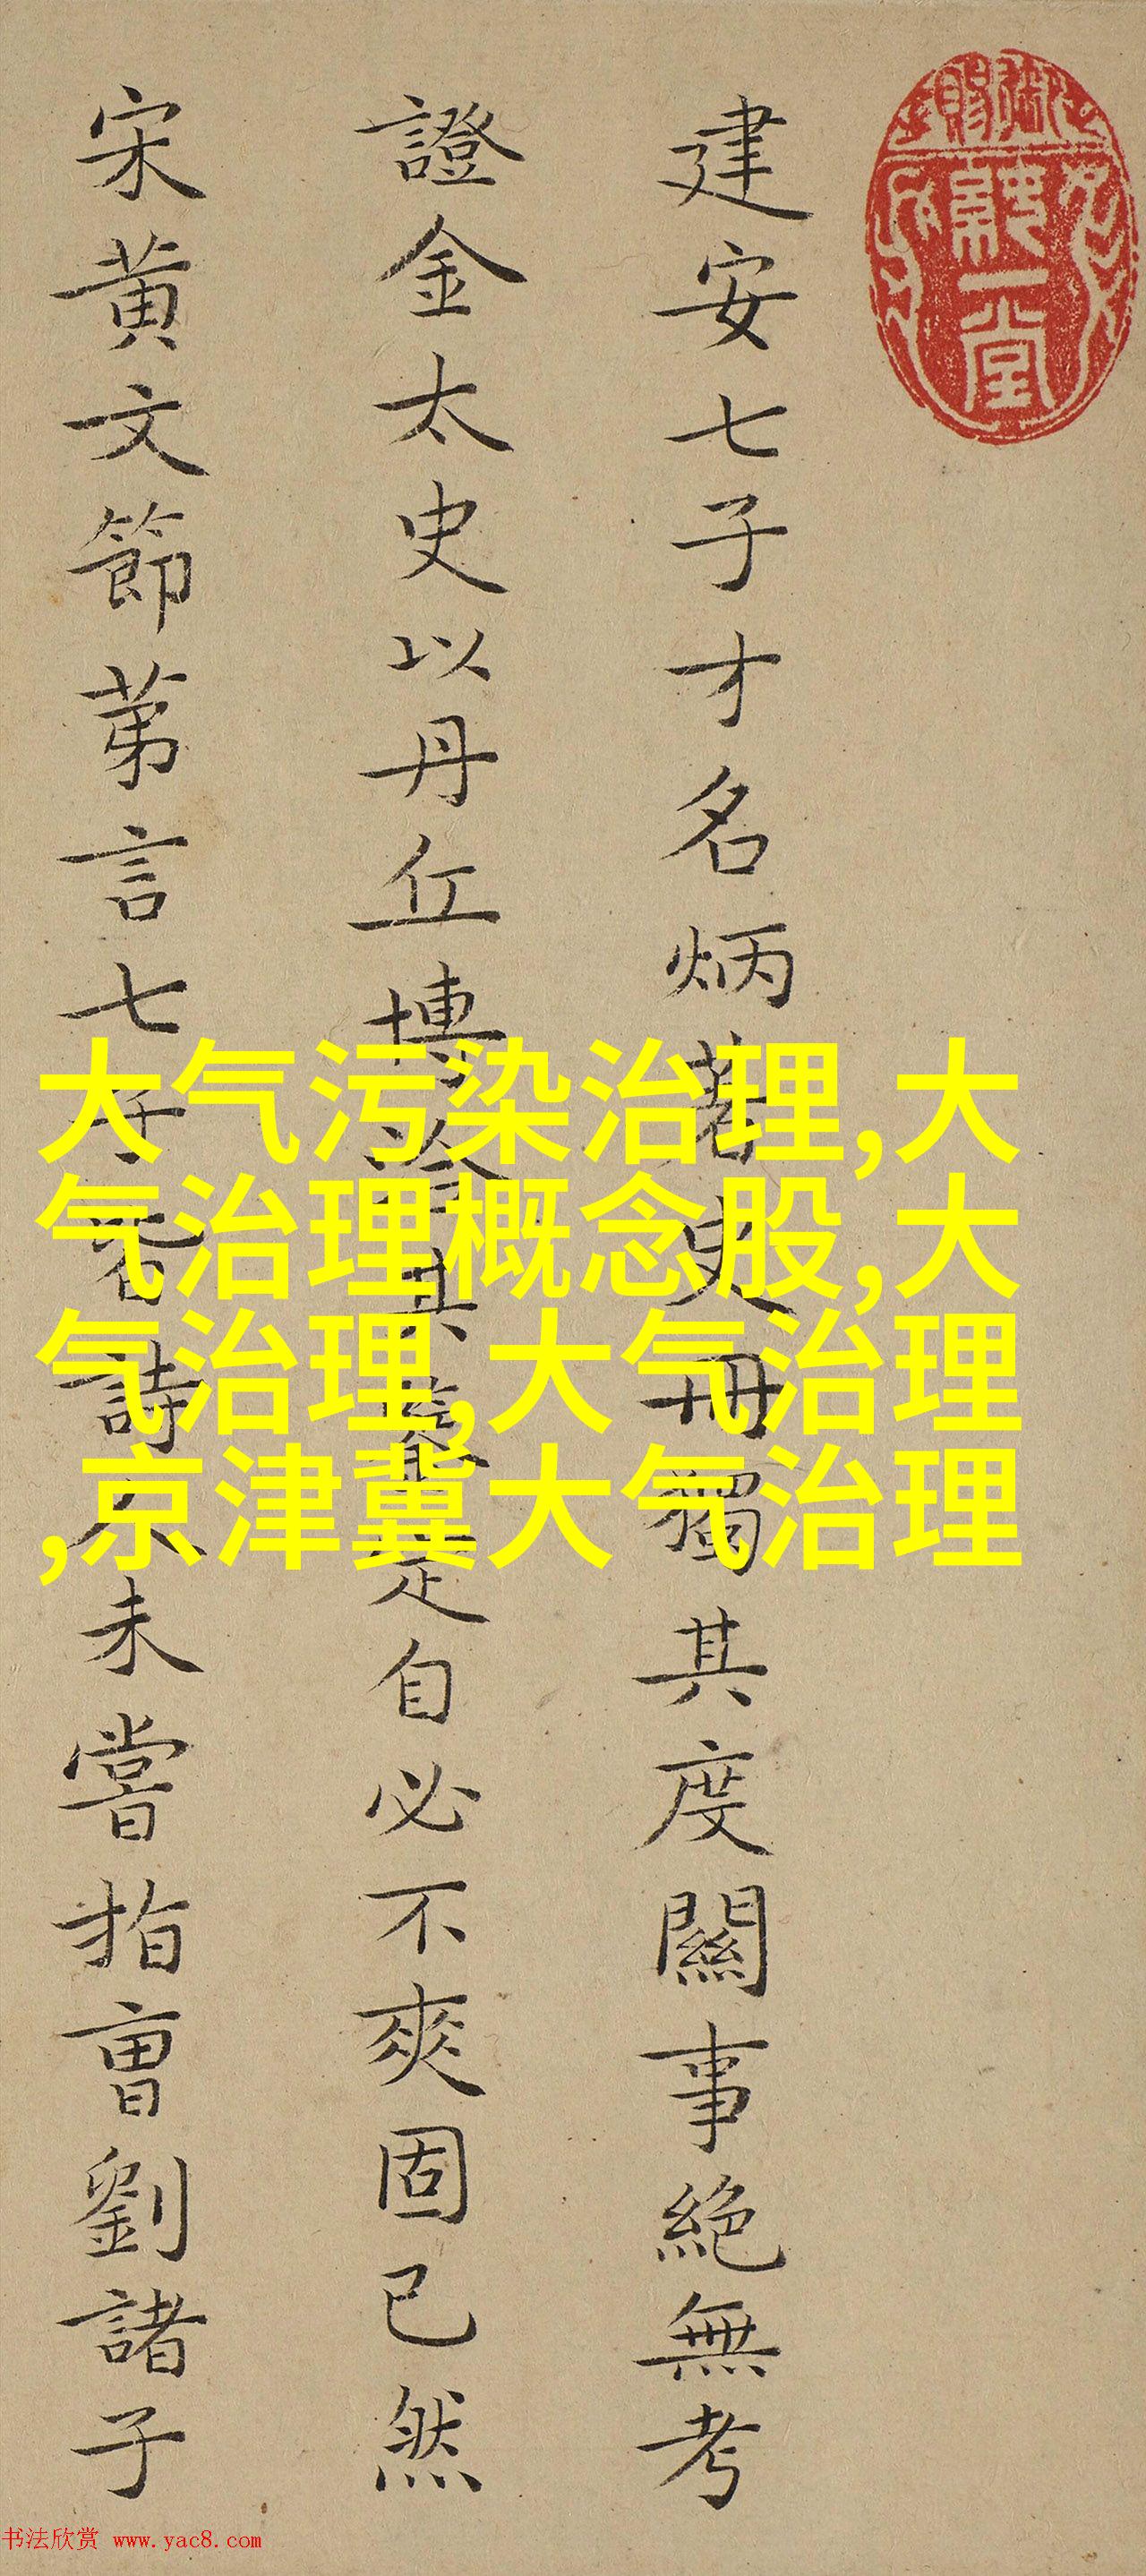 建安七子才名炳著史冊獨其度關事絶無考
證金太史以丹丘博洽其鑒定自必不爽固已然
宋黄文節苐言七子皆詩人未嘗指曹劉諸子
大气污染治理,大
气治理概念股,大
气治理,大气治理
,京津冀大气治理
书法欣赏 www.yac8.com